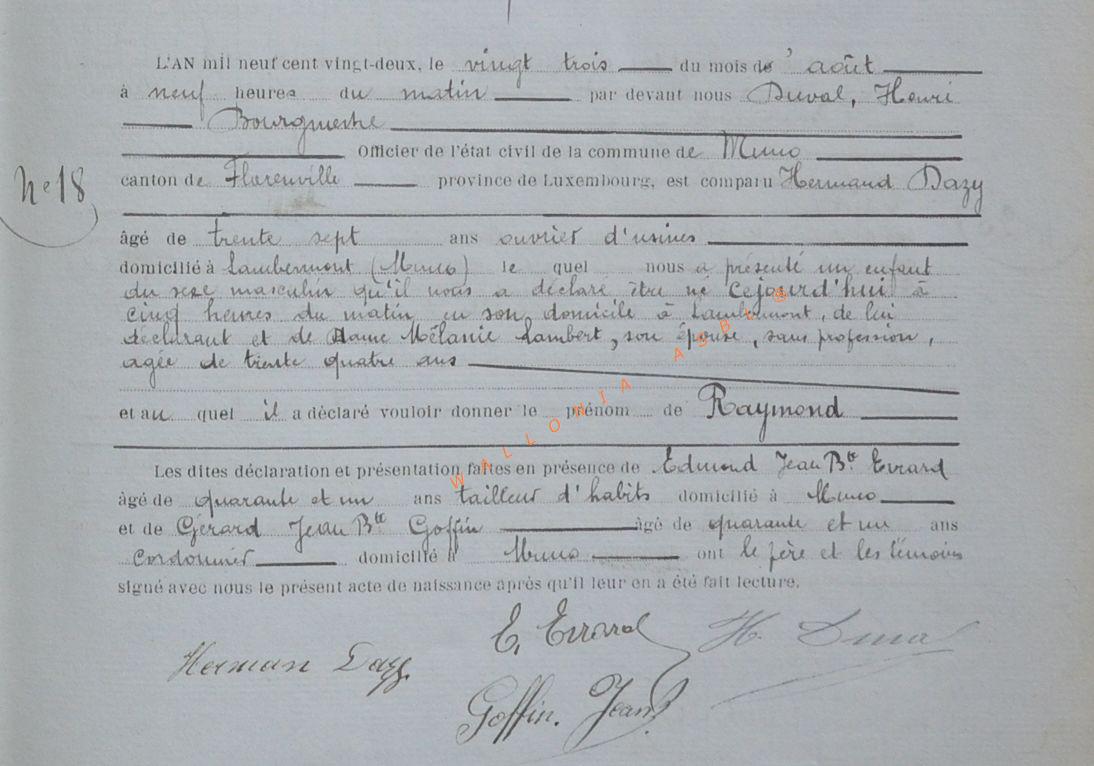 L'AN mil neuf cent vingt-deux, le vingt trois du mois de août
à neuf heures du matin par devant nous Duval, Henri
Bourgmestre
Officier de l'état civil de la commune de Muno
N° 18
canton de Florenville province de Luxembourg, est comparu Hermand Dazy
âgé de trente sept ans ouvrier d'usines
domicilié à Lambermont (Muno) le quel nous a présenté un enfant
du sexe masculin qu'il nous a déclaré être né cejourd'hui à
cinq heures du matin en son domicile à Lambermont, de lui
déclarant et de Dame Mélanie Lambert, son épouse, sans profession,
agée de trente quatre ans
et au quel il a déclaré vouloir donner le prénom de Raymond
Les dites déclaration et présentation faites en présence de Edmond Jean Bte Evrard
âgé de quarante et un ans tailleur d'habits domicilié à Muno
et de Gérard Jean Bte Goffin âgé de quarante et un ans
cordonnier domicilié à Muno ont le père et les témoins
signé avec nous le présent acte de naissance après qu'il leur en a été fait lecture.
E. Evrard H. Duval
Herman Dazy
Goffin. Jean B
WALLONIA ASBL ©